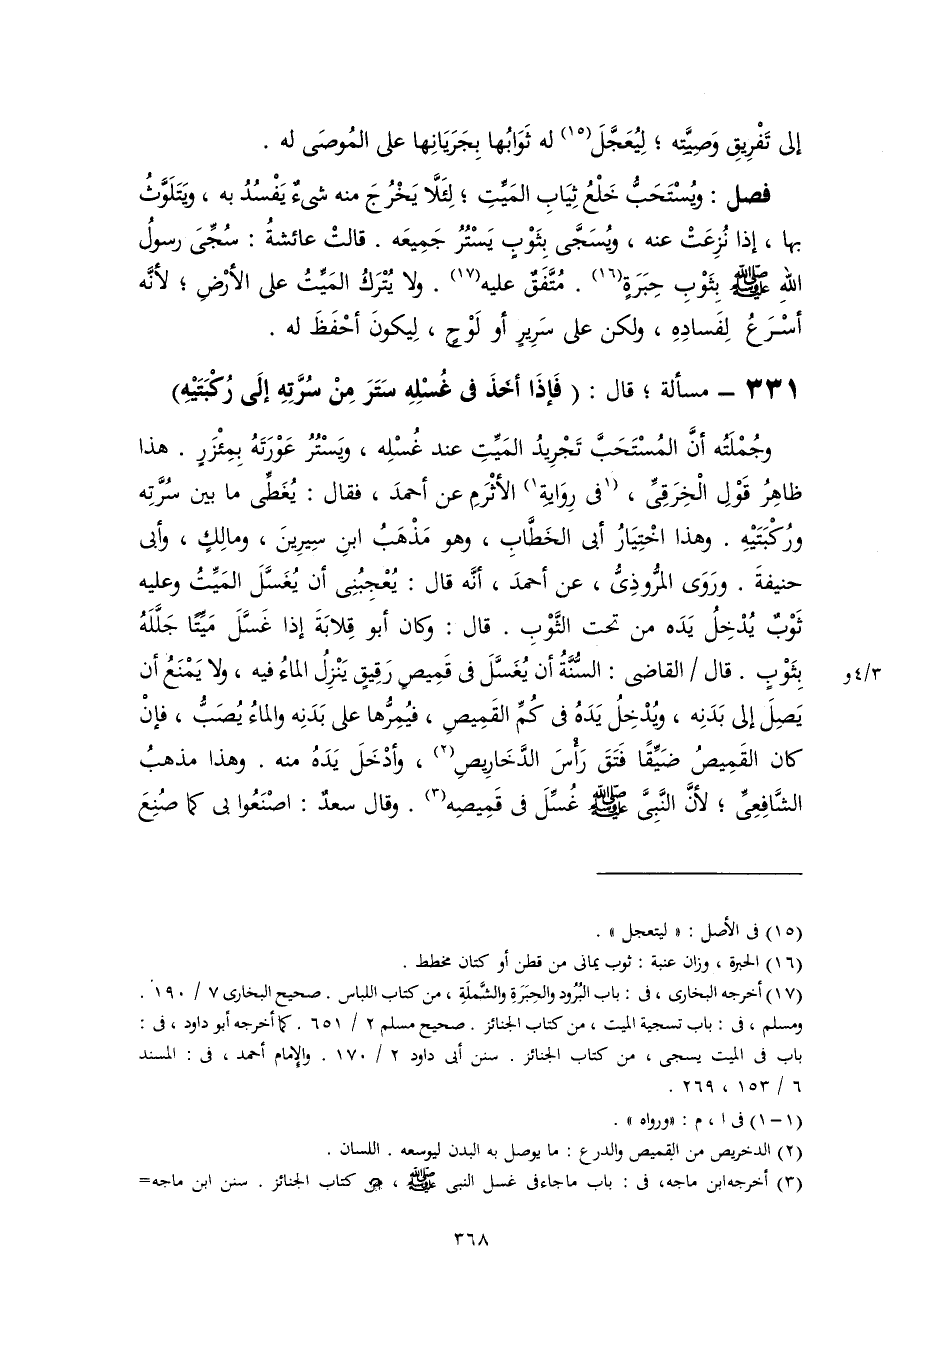 إلى تَفْرِيقِ وَصِيَّتِه ؛ لِيُعَجَّلَ(١٥) له ثَوَابُها بِجَرَيَانِها على المُوصَى له .
فصل : ويُسْتَحَبُّ خَلْعُ ثِيَابِ المَيِّتِ ؛ لِئَلَّا يَخْرُجَ منه شىءٌ يَفْسُدُ به ، ويَتَلَوَّثُ
بها ، إذا نُزِعَتْ عنه ، ويُسَجَّى بِثَوْبٍ يَسْتُرُ جَمِيعَه . قالتْ عائشةُ : سُجِّىَ رسولُ
اللهِ ﷺ بِثَوْبِ حِبَرَةٍ(١٦) . مُتَّفَقٌ عليه(١٧) . ولا يُتْرَكُ المَيِّتُ على الأرْضِ ؛ لأنَّه
أسْرَعُ لِفَسادِهِ ، ولكن على سَرِيرٍ أو لَوْحٍ ، لِيكونَ أحْفَظَ له .
٣٣١ – مسألة ؛ قال : ( فَإذَا أخَذَ فى غُسْلِهِ سَتَرَ مِنْ سُرَّتِهِ إلَى رُكْبَتَيْهِ)
وجُمْلَتُه أنَّ المُسْتَحَبَّ تَجْرِيدُ المَيِّتِ عند غُسْلِه ، ويَسْتُرُ عَوْرَتَهُ بِمِئْزَرٍ . هذا
ظاهِرُ قَوْلِ الْخِرَقِىِّ ، (١فى رِوَايَةِ١) الأثْرَمِ عن أحمدَ ، فقال : يُغَطِّى ما بين سُرَّتِه
ورُكْبَتَيْهِ . وهذا اخْتِيَارُ أبى الخَطَّابِ ، وهو مَذْهَبُ ابنِ سِيرِينَ ، ومالِكٍ ، وأبى
حنيفةَ . ورَوَى المَرُّوذِىُّ ، عن أحمدَ ، أنَّه قال : يُعْجِبُنِى أن يُغَسَّلَ المَيِّتُ وعليه
ثَوْبٌ يُدْخِلُ يَدَه من تحت الثَّوْبِ . قال : وكان أبو قِلابَةَ إذا غَسَّلَ مَيِّتًا جَلَّلَهُ
بِثَوْبٍ . قال / القاضى : السُّنَّةُ أن يُغَسَّلَ فى قَمِيصٍ رَقِيقٍ يَنْزِلُ الماءُ فيه ، ولا يَمْنَعُ أن ٤/٣و
يَصِلَ إلى بَدَنِه ، ويُدْخِلُ يَدَهُ فى كُمِّ القَمِيصِ ، فيُمِرُّها على بَدَنِه والماءُ يُصَبُّ ، فإنْ
كان القَمِيصُ ضَيِّقًا فَتَقَ رَأْسَ الدَّخَارِيصِ(٢) ، وأدْخَلَ يَدَهُ منه . وهذا مذهبُ
الشَّافِعِىِّ ؛ لأنَّ النَّبِىَّ ﷺ غُسِّلَ فى قَمِيصِه(٣) . وقال سعدٌ : اصْنَعُوا بى كما صُنِعَ
(١٥) فى الأصل : « ليتعجل » .
(١٦) الحبرة ، وزان عنبة : ثوب يمانى من قطن أو كتان مخطط .
(١٧) أخرجه البخارى ، فى : باب البُرُود والحِبَرَةِ والشَّمْلَةِ ، من كتاب اللباس . صحيح البخارى ٧ / ١٩٠ .
ومسلم ، فى : باب تسجية الميت ، من كتاب الجنائز . صحيح مسلم ٢ / ٦٥١ . كما أخرجه أبو داود ، فى :
باب فى الميت يسجى ، من كتاب الجنائز . سنن أبى داود ٢ / ١٧٠ . والإمام أحمد ، فى : المسند
٦ / ١٥٣ ، ٢٦٩ .
(١-١) فى ا ، م : «ورواه » .
(٢) الدخريص من القميص والدرع : ما يوصل به البدن ليوسعه . اللسان .
(٣) أخرجه ابن ماجه، فى : باب ماجاءفى غسل النبى ﷺ ، من كتاب الجنائز . سنن ابن ماجه=
٣٦٨